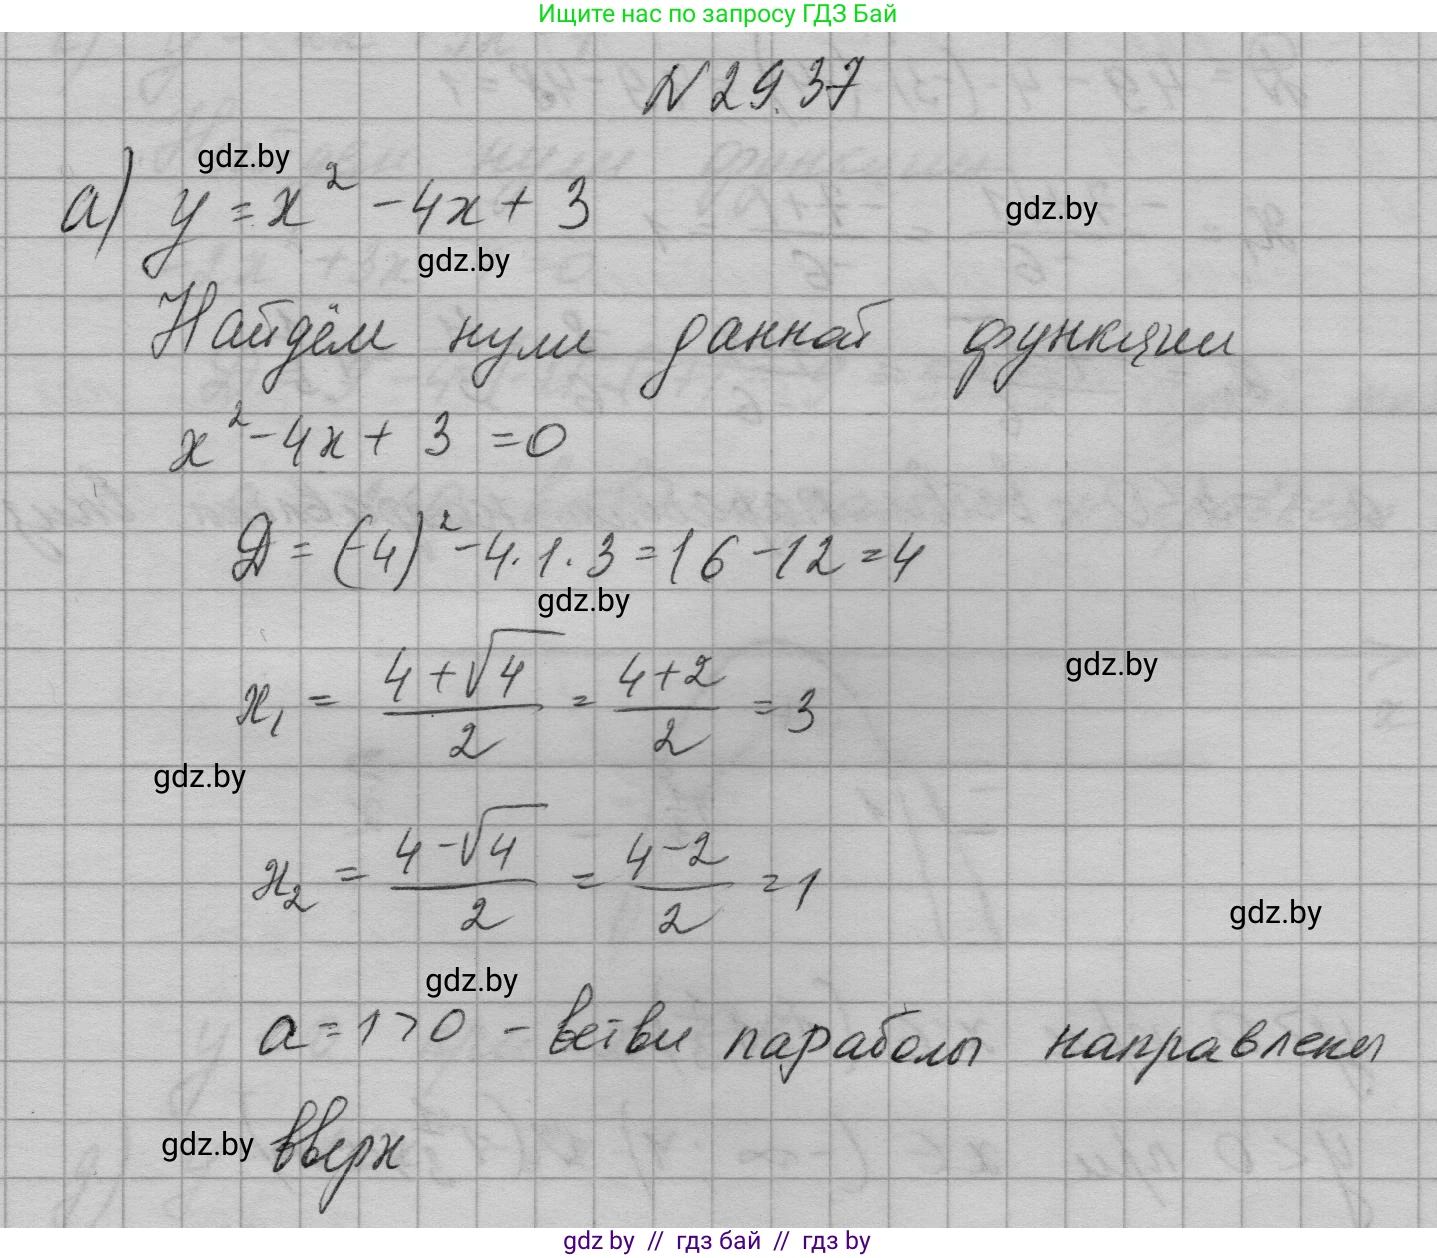 Ищите нас по запросу ГДЗ Бай
N 29.37
gdz.by
а) y = x² - 4x + 3
gdz.by
gdz.by
Найдём нули данной функции
x² - 4x + 3 = 0
D = (-4)² - 4·1·3 = 16 - 12 = 4
gdz.by
x₁ = (4 + √4)/2 = (4 + 2)/2 = 3
gdz.by
gdz.by
x₂ = (4 - √4)/2 = (4 - 2)/2 = 1
gdz.by
gdz.by
a = 1 > 0 - ветви параболы направлены
gdz.by вверх
gdz by // гдз бай // гдз by